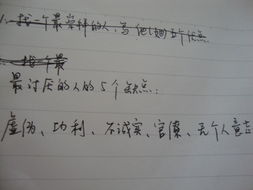 1. 找一个最崇拜的人,写他(她)五个优点
找一个最
最讨厌的人的5个缺点:
虚伪、功利、不诚实、官僚、无个人意志